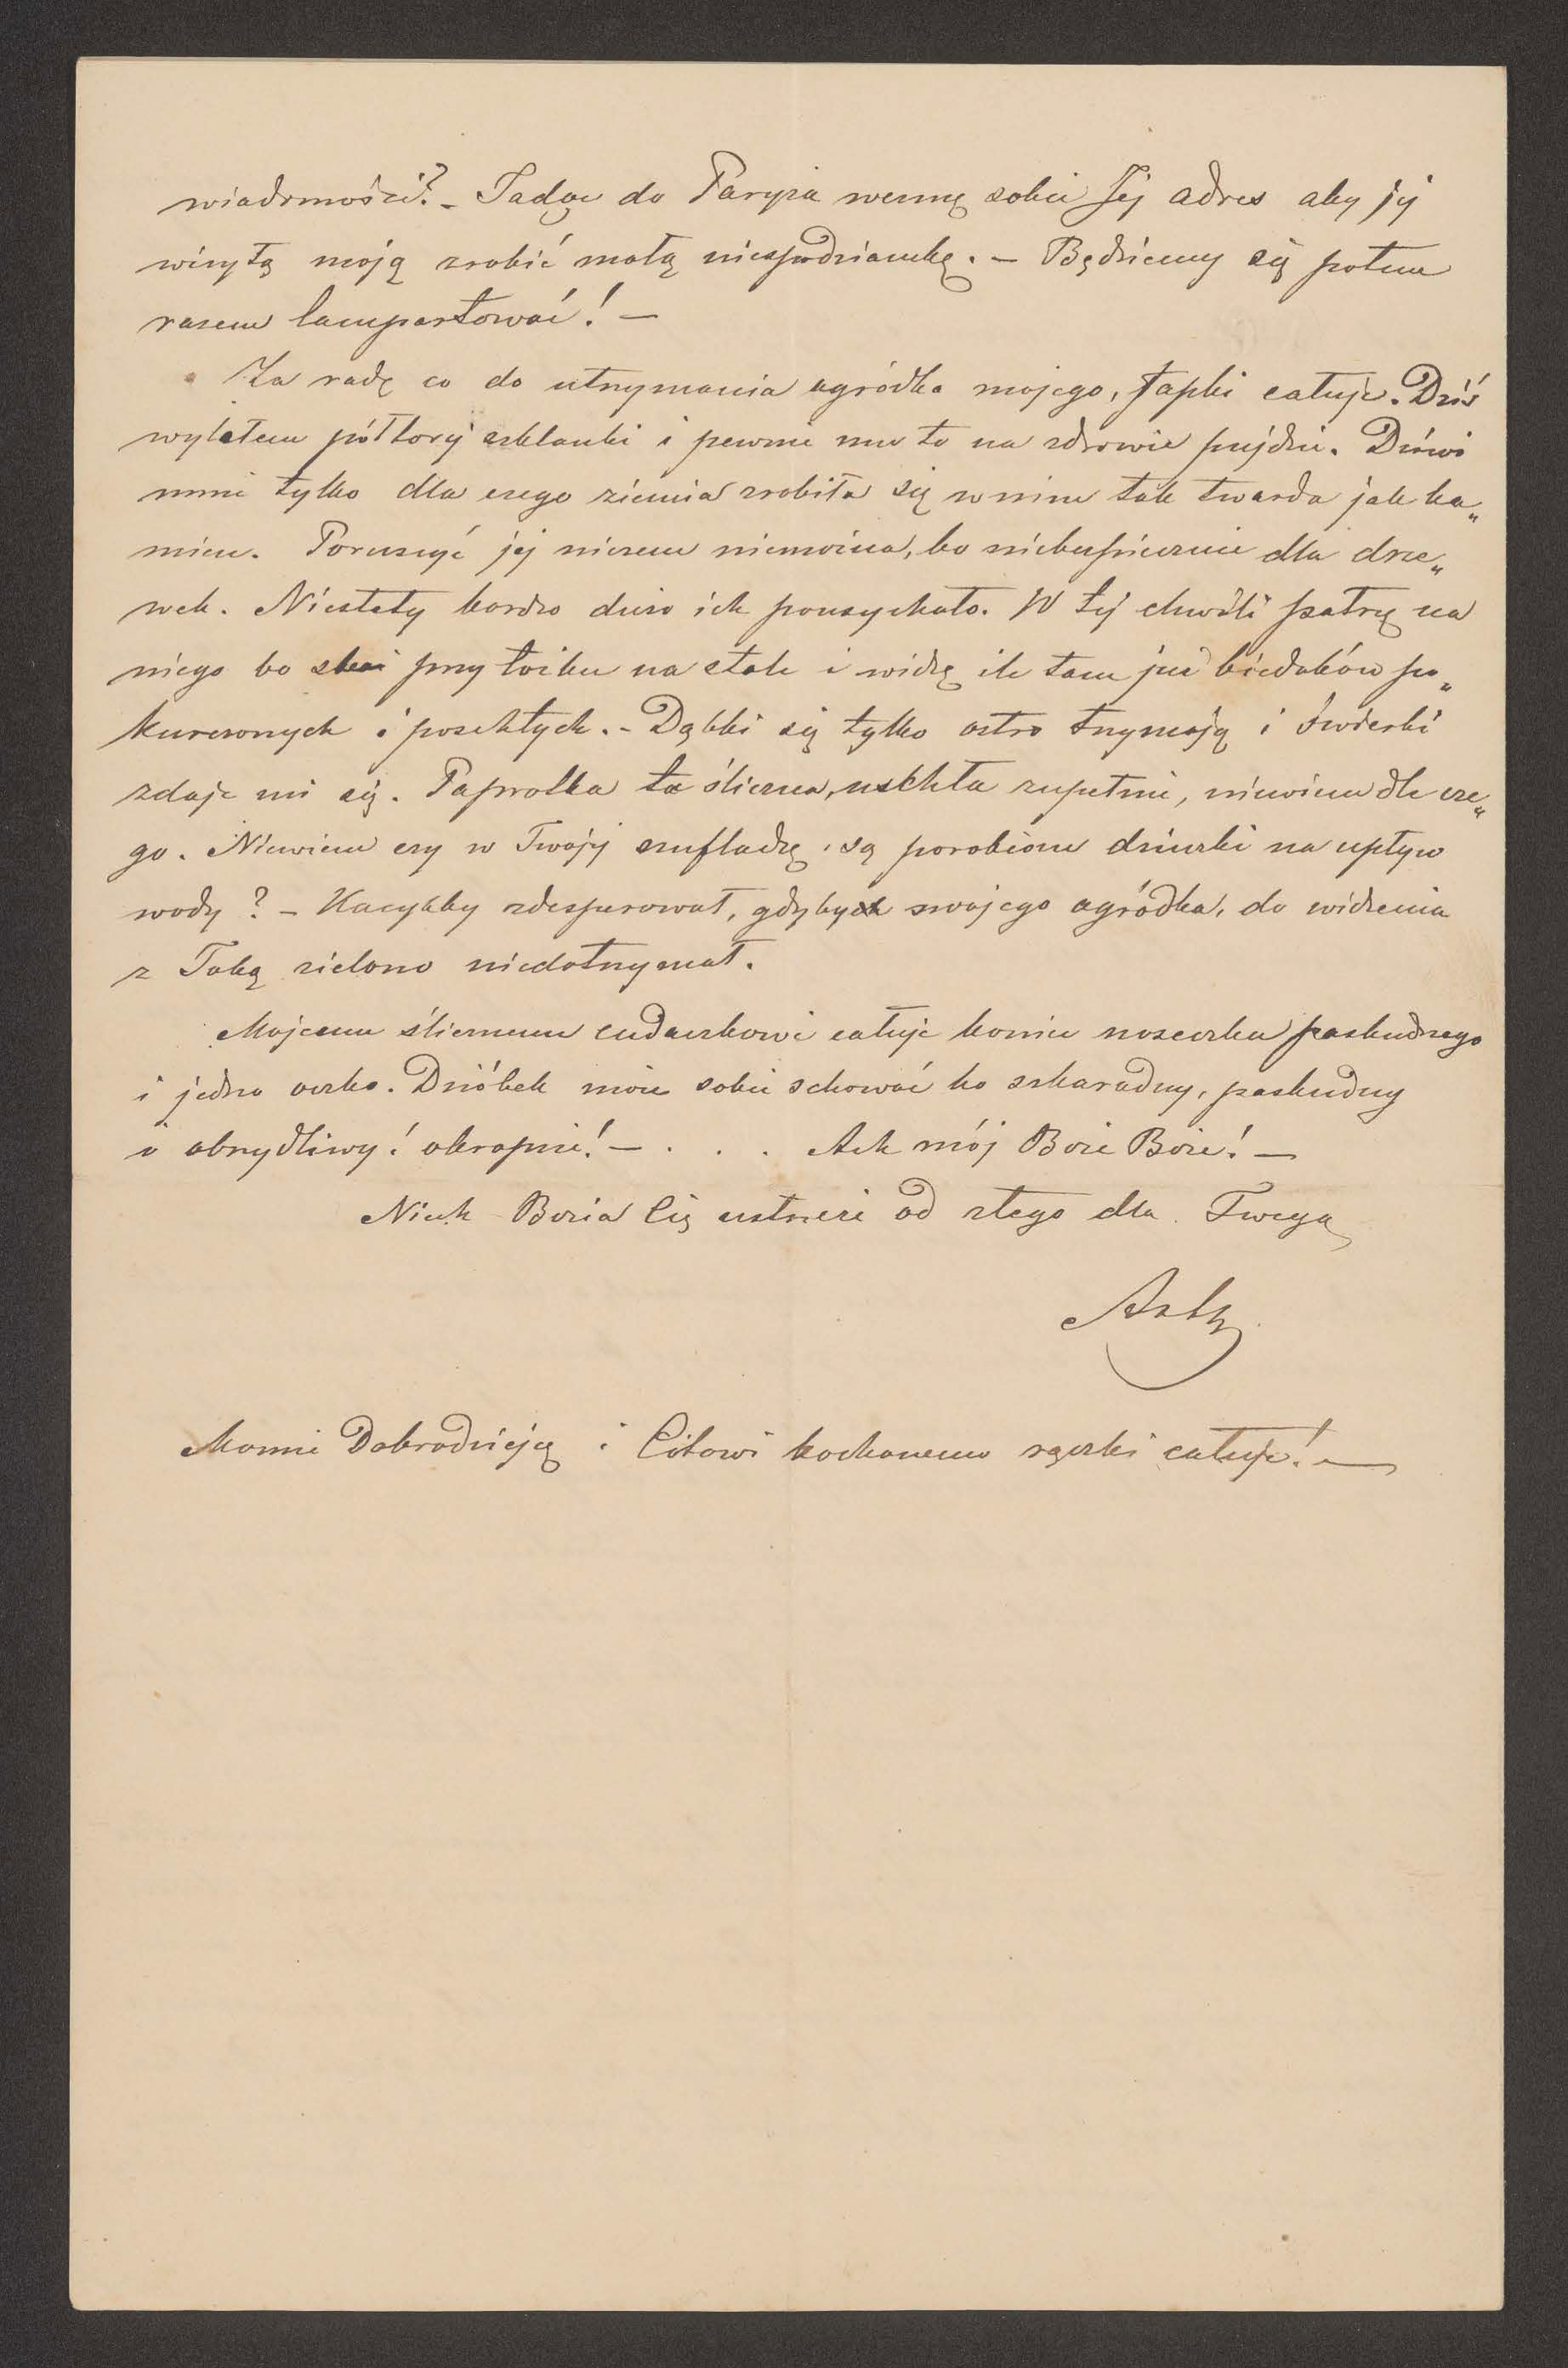 wiadomości? – Jadąc do Paryża wezmę sobie Jej adres aby jej
wizytą moją zrobić małą niespodziankę. – Będziemy się potem
razem lampartować! –
Za radę co do utrzymania ogródka mojego, łapki całuję. Dziś
wylałem półtorej szklanki i pewnie mu to na zdrowie pójdzie. Dziwi
mnie tylko dla czego ziemia zrobiła się w nim tak twarda jak ka„
mień. Poruszyć jej niczem niemożna, bo niebezpiecznie dla drze„
wek. Niestety bardzo dużo ich pousychało. W tej chwili patrzę na
niego bo stoi przy łóżku na stole i widzę ile tam już biedaków po„
kurczonych i poschłych. – Dąbki się tylko ostro trzymają i świerki
zdaje mi się. Paprotka ta śliczna, uschła zupełnie, niewiem dla cze„
go. Niewiem czy w Twojej szufladzie są porobione dziurki na upływ
wody? – Kacykby zdesperował, gdyby swojego ogródka, do widzenia
z Tobą zielono niedotrzymał.
Mojemu ślicznemu cudaczkowi całuję koniec noseczka paskudnego
i jedno oczko. Dzióbek może sobie schować bo szkaradny, paskudny
i obrzydliwy! okropnie! – . . . Ach mój Boże Boże! –
Niech Bozia Cię ustrzeże od złego dla Twego
Mamie Dobrodziejce i Ciotowi kochanemu rączki całuję! –